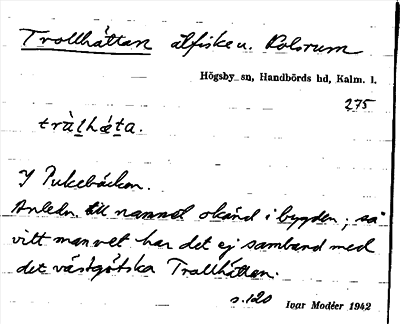 Trollhättan ålfiske u. Rolsrum
Högsby sn, Handbörds hd, Kalm. l.
275
tràlhǽta.
I Pukebäcken.
Anledn. till namnet okänd i bygden; så
vitt man vet har det ej samband med
det västgötska Trollhättan.
s. 120 Ivar Modéer 1942